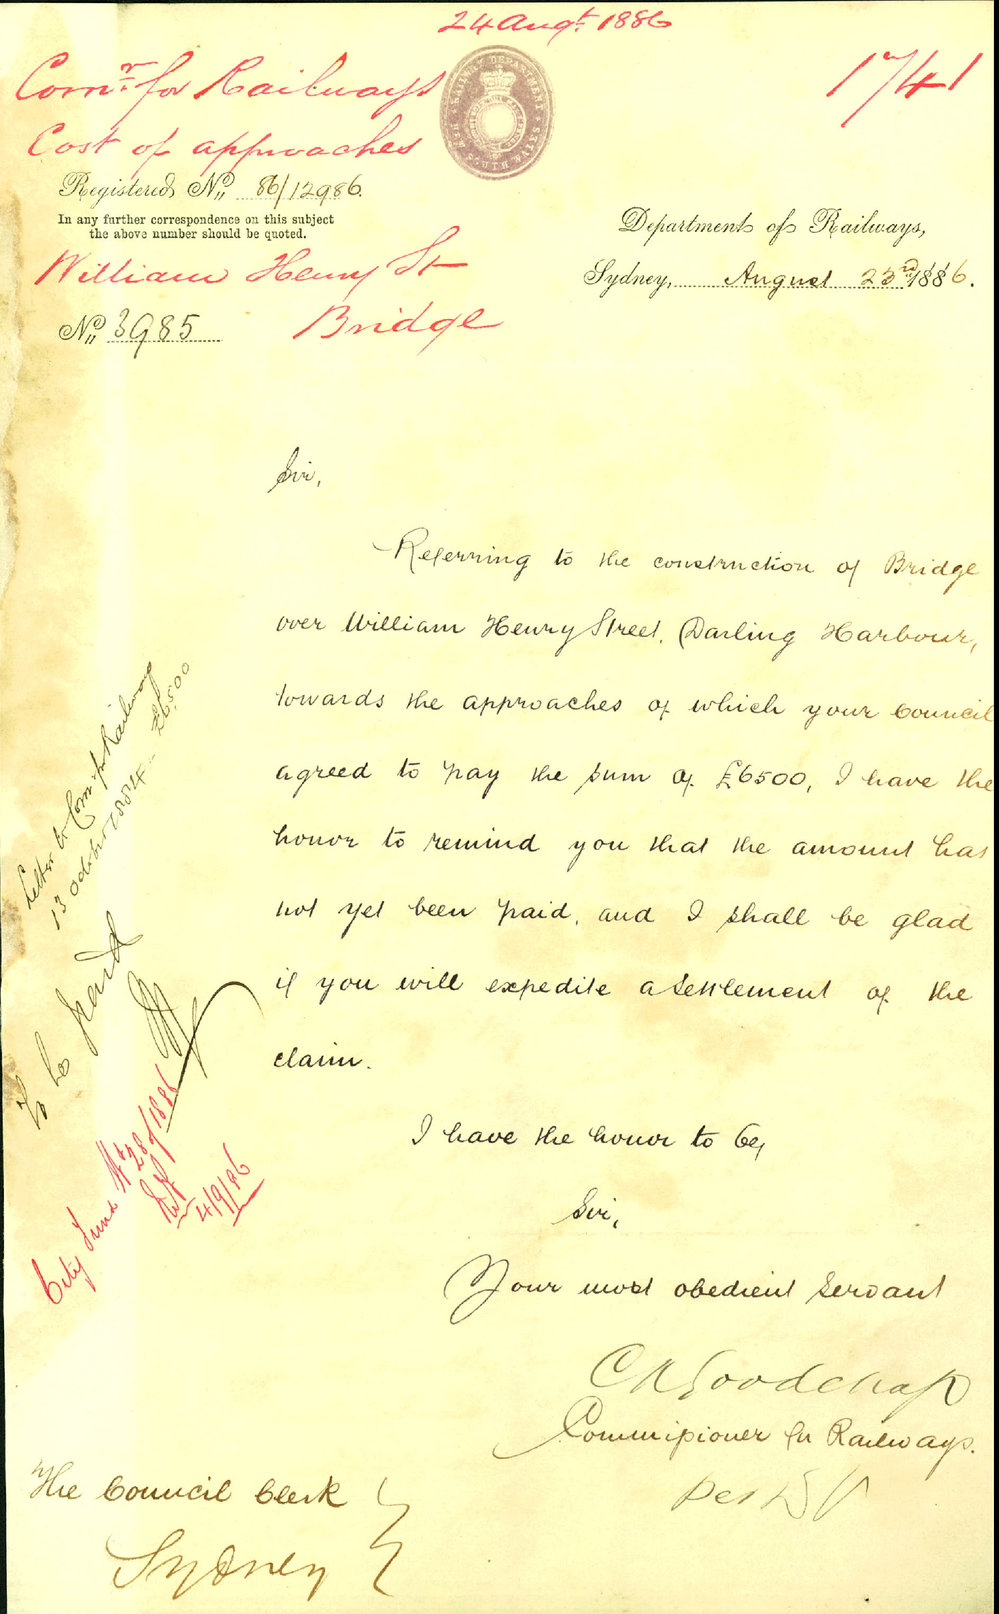 24 Augt. 1886
1741
Comr. for Railways
Cost of approaches
RAILWAY DEPARTMENT
NEW SOUTH WALES
Registered No. 86/12986.
In any further correspondence on this subject
the above number should be quoted.
William Henry St
Bridge
No. 3985
Department of Railways,
Sydney, August 23rd 1886.
Sir,
Referring to the construction of Bridge
over William Henry Street, Darling Harbour,
towards the approaches of which your Council
agreed to pay the sum of £6500, I have the
honor to remind you that the amount has
not yet been paid, and I shall be glad
if you will expedite a settlement of the
claim.
I have the honor to be,
Sir,
Your most obedient Servant
Ch A Goodchap
Commissioner for Railways.
per
The Council Clerk
Sydney
Letter to Comr for Railways
13 October 1884 - £6500
City Fund Wt 28/1886
4/9/86